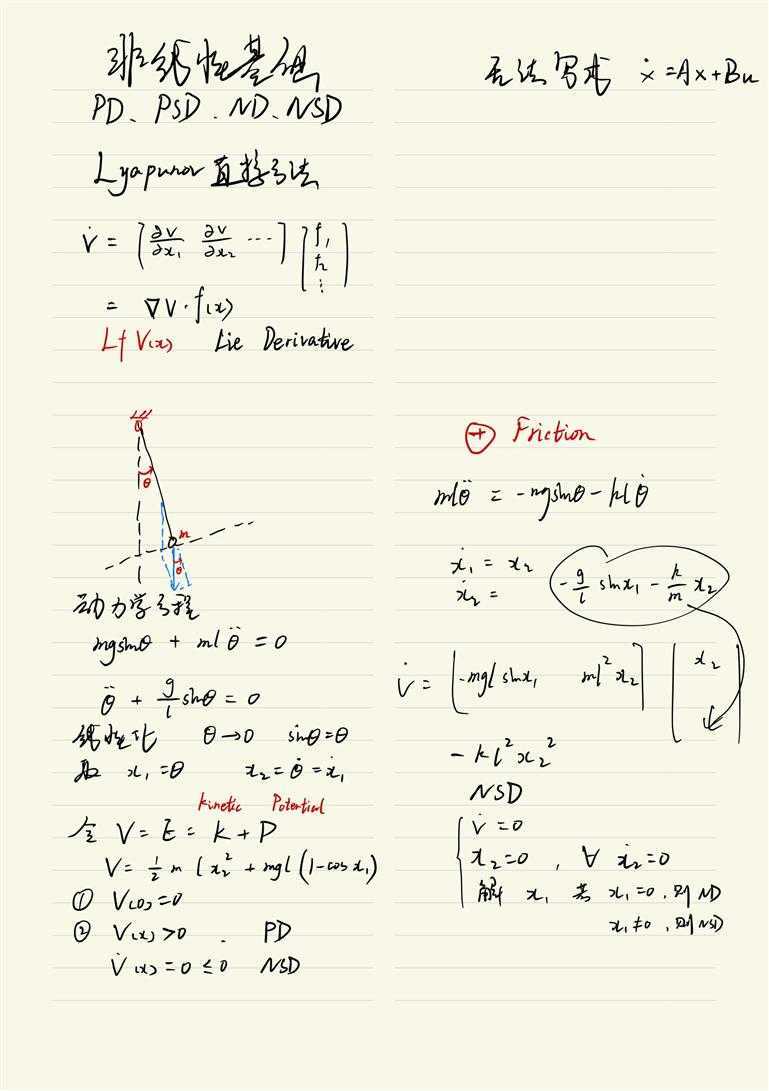 非线性基础
PD、PSD、ND、NSD
Lyapunov 直接方法
V̇ = [∂V/∂x₁ ∂V/∂x₂ ⋯] [f₁ f₂ ⋮]
= ∇V·f(x)
Lf V(x) Lie Derivative
θ
m
θ
动力学方程
mgsinθ + mlθ̈ = 0
θ̈ + g/l sinθ = 0
线性化 θ→0 sinθ=θ
取 x₁=θ x₂=θ̇=ẋ₁
Kinetic Potential
令 V = E = K + P
V = ½ m l x₂² + mgl (1-cos x₁)
① V(0)=0
② V(x)>0 . PD
V̇(x)=0 ≤ 0 NSD
无法写成 ẋ=Ax+Bu
⊕ Friction
mlθ̈ = -mgsinθ-klθ̇
ẋ₁ = x₂
ẋ₂ = -g/l sinx₁ - k/m x₂
V̇ = [-mgl sinx₁ ml²x₂] [x₂ ]
- kl²x₂²
NSD
V̇=0
x₂=0 , ∀ ẋ₂=0
解 x₁ 若 x₁=0, 则ND
x₁≠0, 则NSD